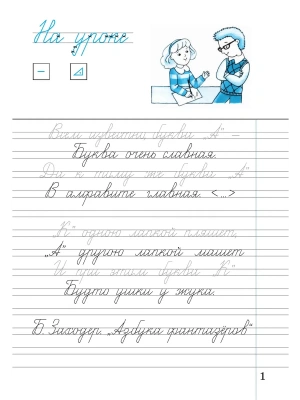 На уроке
Всем известна буква „А" –
Буква очень славная.
Да к тому же буква „А"
В алфавите главная. <...>
„К" одною лапкой пляшет,
„А" другою лапкой машет
И при этом буква „К"
Будто ушки у жука.
Б. Заходер. „Азбука фантазёров"
1